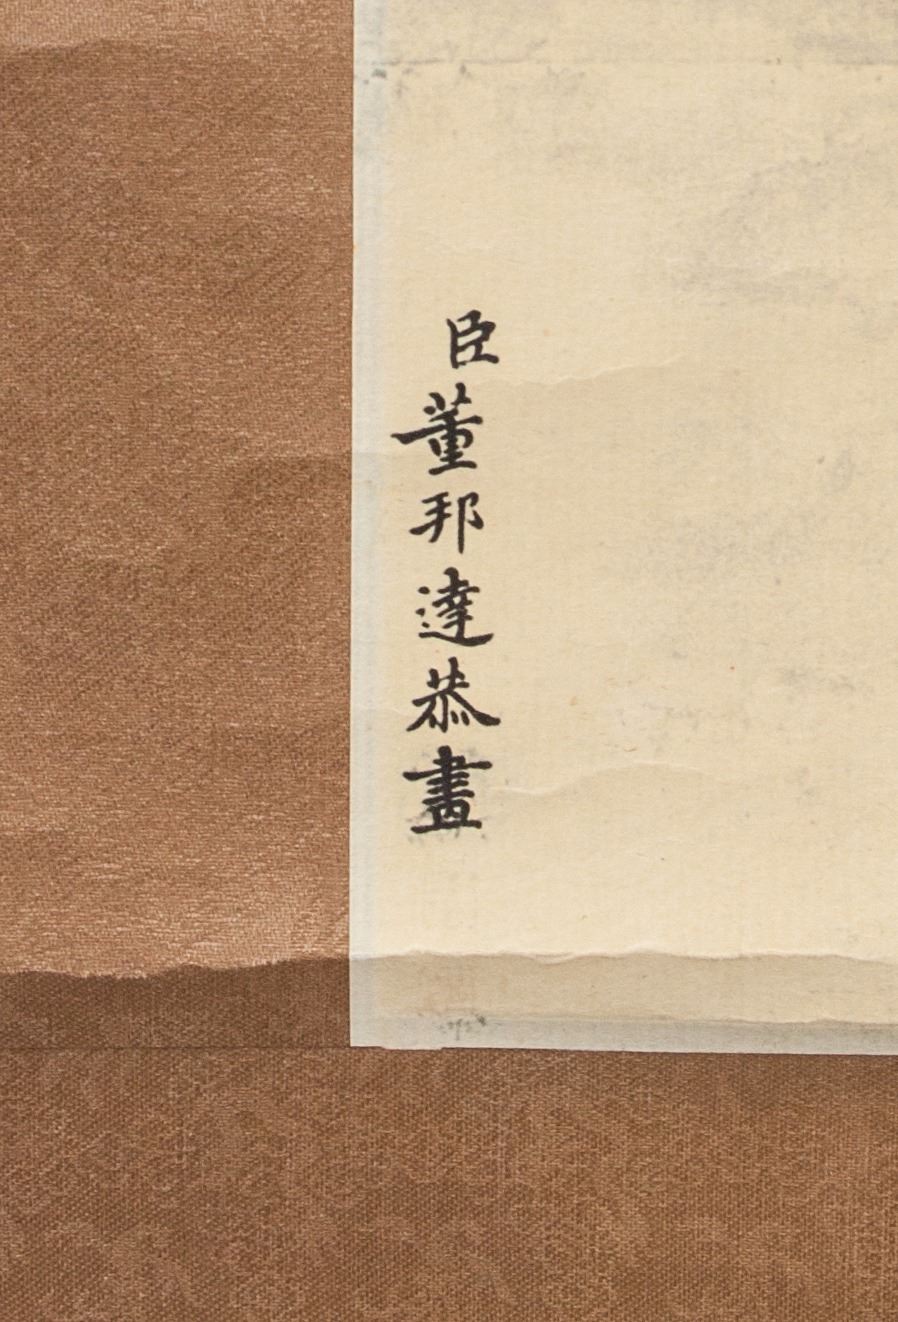 臣董邦達恭畫